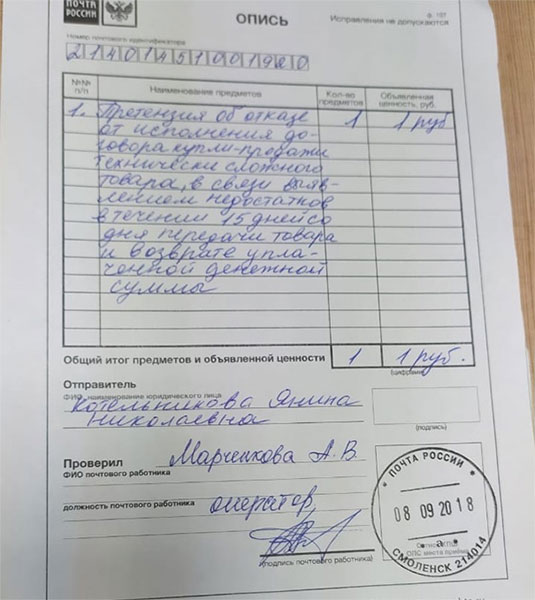 ПОЧТА
РОССИИ
ОПИСЬ
ф. 107
Исправления не допускаются
Номер почтового идентификатора
21401451001920
№№ п/п
Наименование предметов
Кол-во предметов
Объявленная ценность, руб.
1. Претензия об отказе 1 1 руб
от исполнения до-
говора купли-продажи
технически сложного
товара, в связи выяв-
лением недостатков
в течении 15 дней со
дня передачи товара
и возврате упла-
ченной денежной
суммы
Общий итог предметов и объявленной ценности 1 1 руб.
(цифрами)
Отправитель
ФИО, наименование юридического лица
Котельникова Янина
Николаевна
(подпись)
Проверил Марченкова А.В
ФИО почтового работника
должность почтового работника оператор
(подпись почтового работника)
ПОЧТА РОССИИ
08 09 20 18
а
ОПС места приёма
СМОЛЕНСК 214014